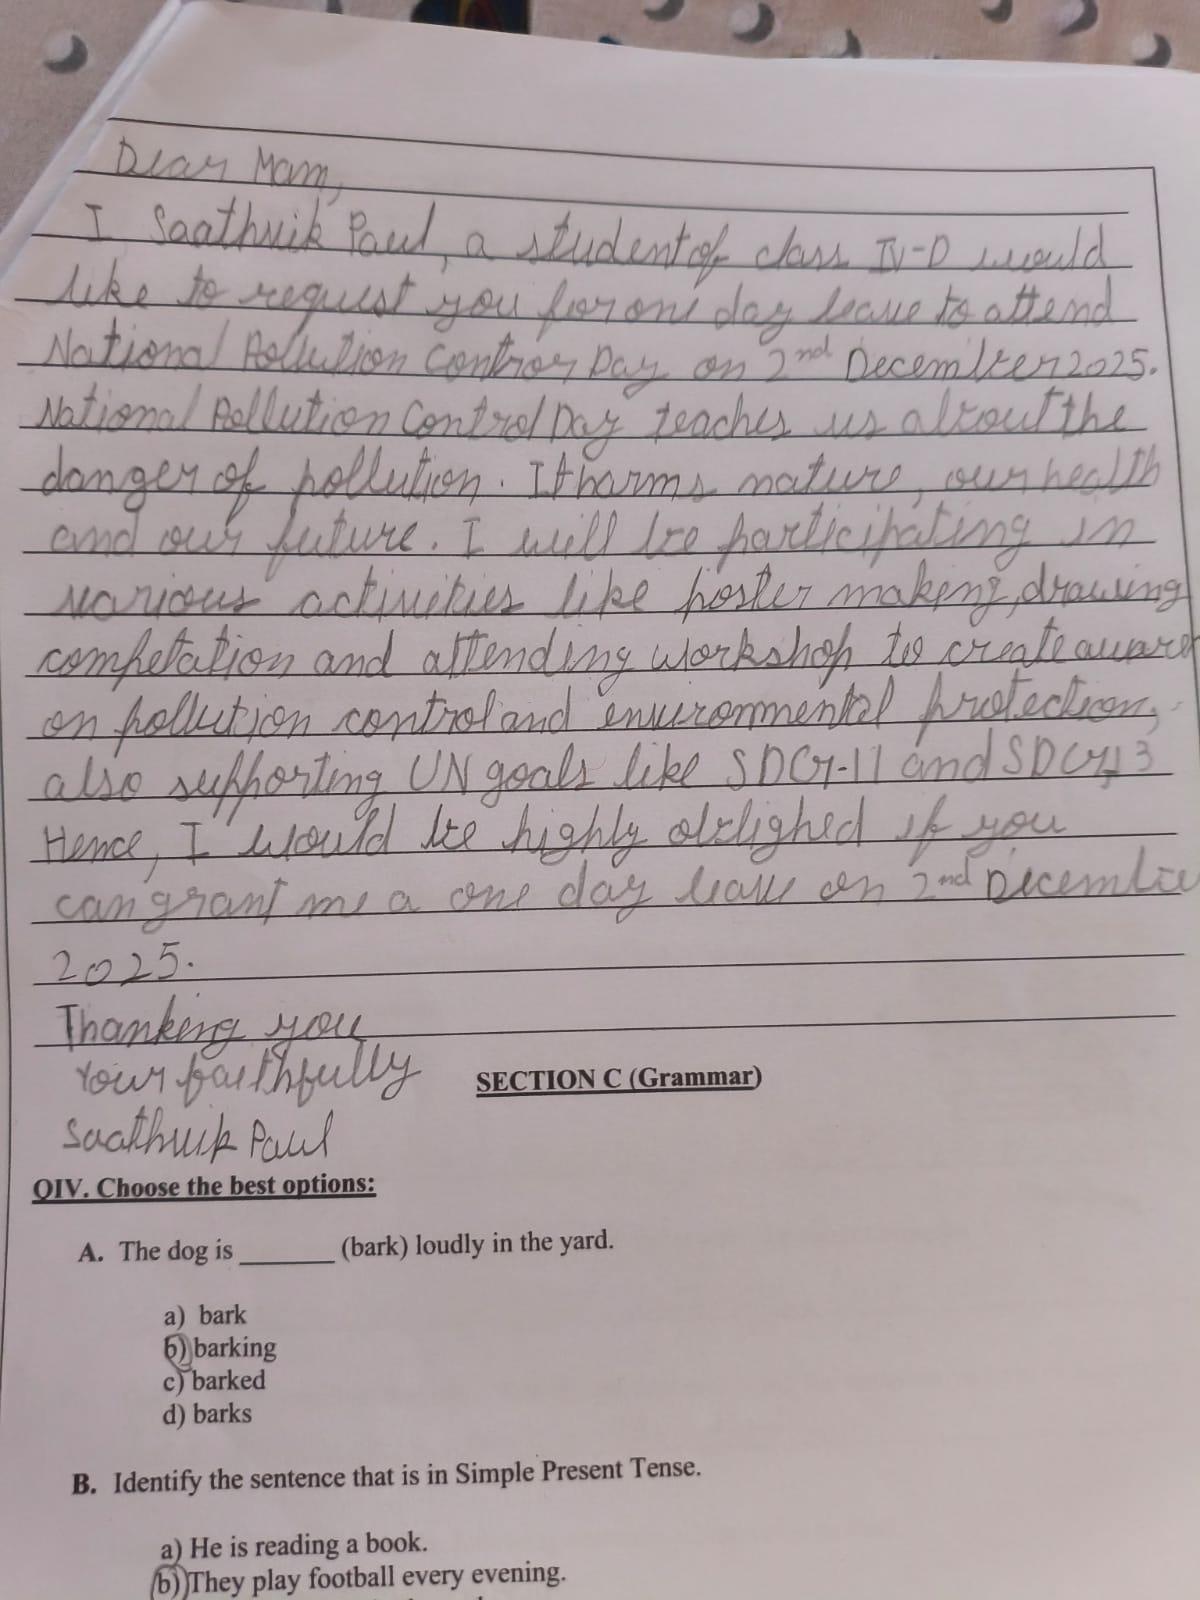 Dear Mam,
I Saathvik Paul, a student of class IV-D would
like to request you for one day leave to attend
National Pollution Control Day on 2nd December 2025.
National Pollution Control Day teaches us about the
danger of pollution. It harms nature, our health
and our future. I will be participating in
various activities like poster making, drawing
competation and attending workshop to create
on pollution control and environmental protection,
also supporting UN goals like SDG-11 and SDG 13
Hence, I would be highly oblighed if you
can grant me a one day leave on 2nd Decembe
2025.
Thanking you
Your faithfully
Saathvik Paul
SECTION C (Grammar)
QIV. Choose the best options:
A. The dog is ______ (bark) loudly in the yard.
a) bark
b) barking
c) barked
d) barks
B. Identify the sentence that is in Simple Present Tense.
a) He is reading a book.
b) They play football every evening.